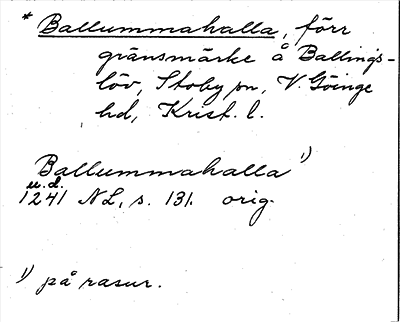 * Ballummahalla, förr
gränsmärke å Ballings-
löv, Stoby sn, V. Göinge
hd, Krist. l.
Ballummahalla 1)
u.d.
1241 NL, s. 131. orig.
1) på rasur.